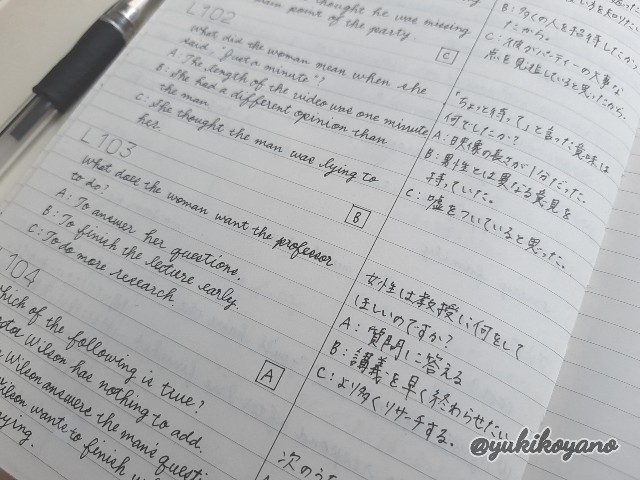 thought he was missing
main point of the party.
C
L102
What did the woman mean when she
said, "Just a minute"?
A: The length of the video was one minute
B: She had a different opinion than
the man
C: She thought the man was lying to
her.
B
L103
What does the woman want the professor
to do?
A: To answer her questions.
B: To finish the lecture early.
C: To do more research.
A
104
hich of the following is true?
Wilson has nothing to add.
Wilson answers the man's questi
ilson wants to finish
aying.
B: 多くの人を招待したかっ
たから。
C: 彼がパーティーの大事な
点を見逃していると思ったから。
「ちょっと待って」と言った意味は
何でしたか?
A: 映像の長さが1分だった。
B: 男性とは異なる意見を
持っていた。
C: 嘘をついていると思った。
女性は教授に何をして
ほしいのですか?
A: 質問に答える
B: 講義を早く終わらせたい
C: より多くリサーチする。
次のうち
@yukikoyano